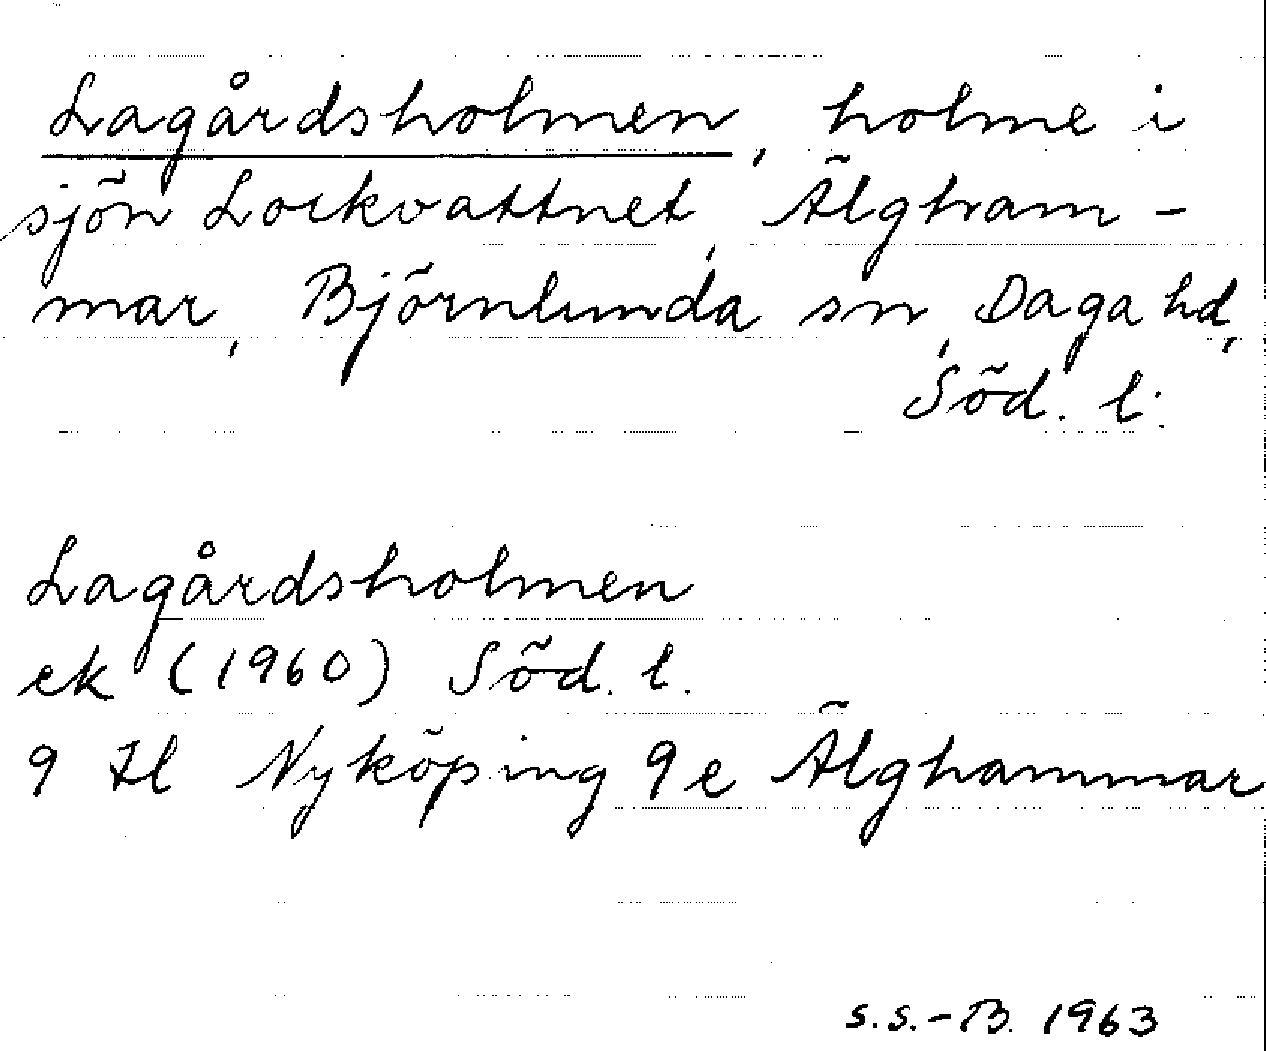 Lagårdsholmen, holme i
sjön Lockvattnet, Älgham-
mar, Björnlunda sn, Daga hd,
Söd. l.
Lagårdsholmen
ek (1960) Söd. l.
9 Hl Nyköping 9e Älghammar
S.S.-B. 1963